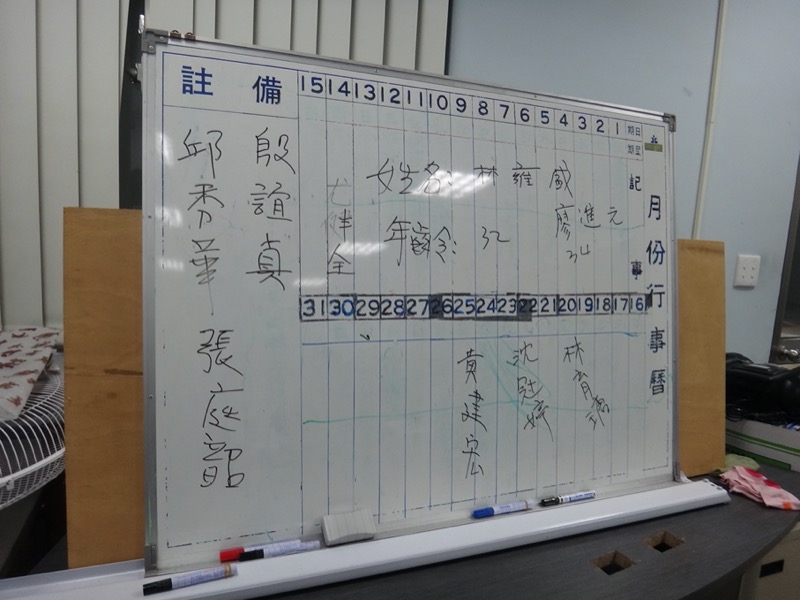 月份行事曆
日期
星期
記事
1 2 3 4 5 6 7 8 9 10 11 12 13 14 15
備註
姓名:林雍盛
年齡:32
廖進元
34
尤律全
殷誼真
邱秀華
16 17 18 19 20 21 22 23 24 25 26 27 28 29 30 31
林育
沈
黃建宏
張庭韶